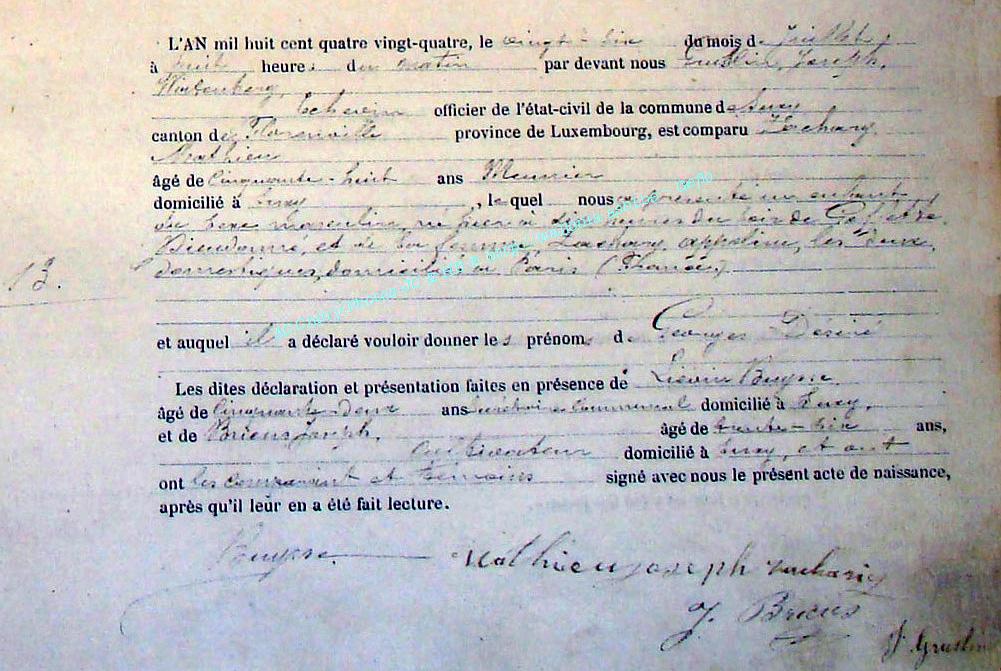 L'AN mil huit cent quatre vingt-quatre, le vingt-six du mois de Juillet,
à huit heures du matin par devant nous Gustin, Joseph,
officier de l'état-civil de la commune de Suxy
canton de Florenville province de Luxembourg, est comparu Zachary
Mathieu
âgé de Cinquante-huit ans Meunier
domicilié à Suxy, lequel nous a présenté un enfant
du sexe masculin, né hier à dix heures du soir de
Dieudonné, et de la femme Zachary, appoline, les deux
domestiques, domiciliés à Paris (France).
13.
et auquel il a déclaré vouloir donner les prénoms de Georges Désiré
Les dites déclaration et présentation faites en présence de Liévin Buysse
âgé de Cinquante-Deux ans Secrétaire Communal domicilié à Suxy,
et de Bricus Joseph, âgé de trente-six ans,
Cultivateur domicilié à Suxy, et ont
ont les comparant et témoins signé avec nous le présent acte de naissance,
après qu'il leur en a été fait lecture.
Buysse
Mathieu joseph zachariy
J. Bricus
J. Gustin